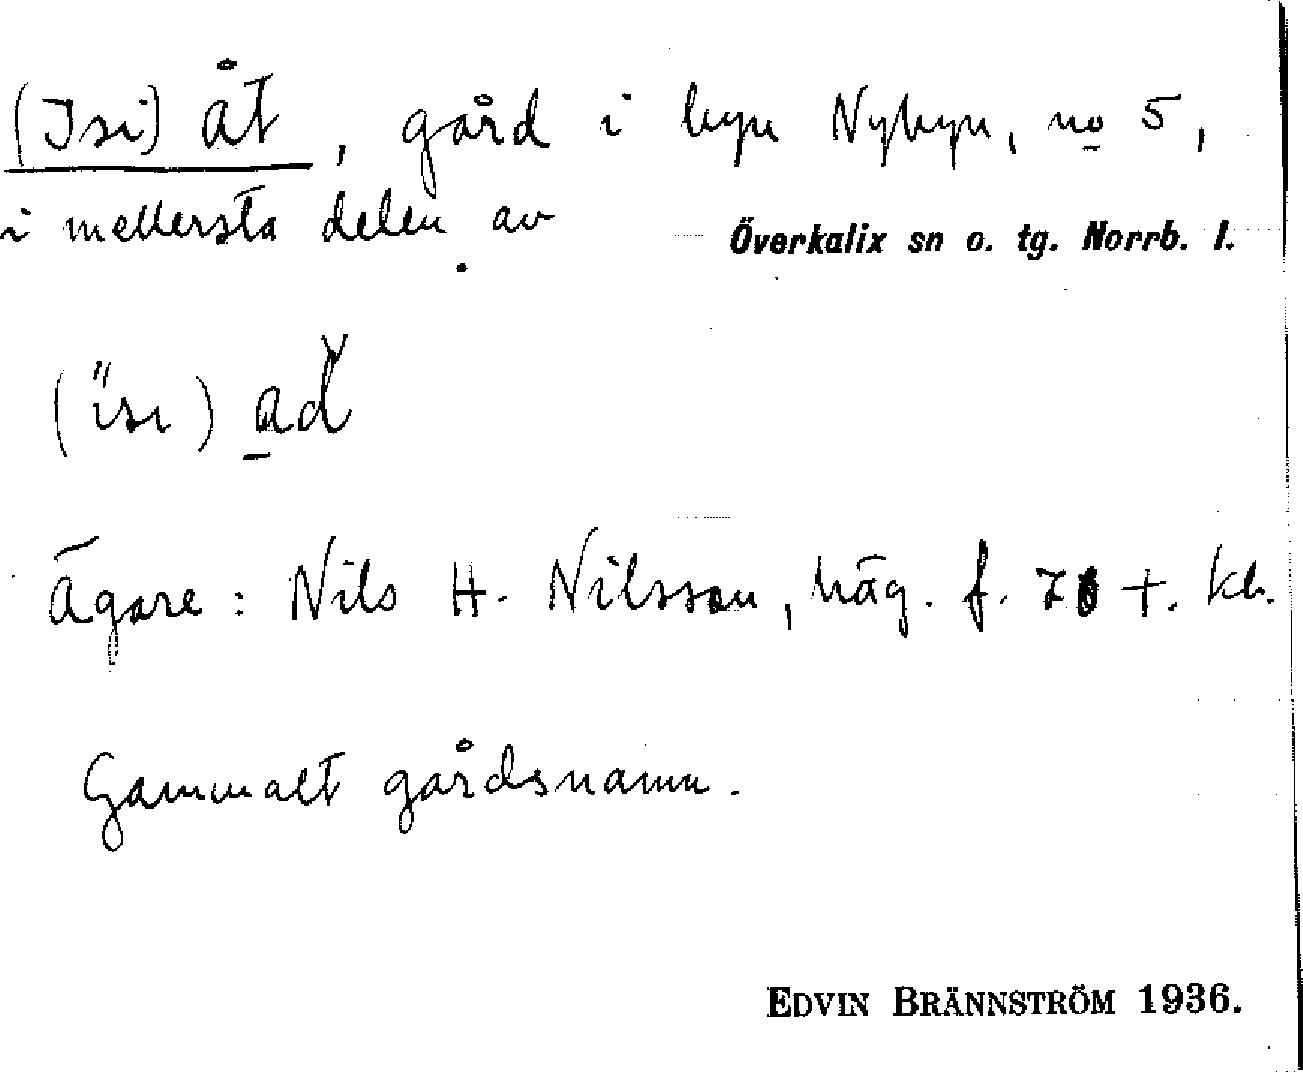 (Isi) åt, gård i byn Nybyn, no 5,
i mellersta delen av Överkalix sn o. tg. Norrb. l.
(ïsi) ad
Ägare: Nils H. Nilsson, häg. f. +. kl.
Gammalt gårdsnamn.
EDVIN BRÄNNSTRÖM 1936.